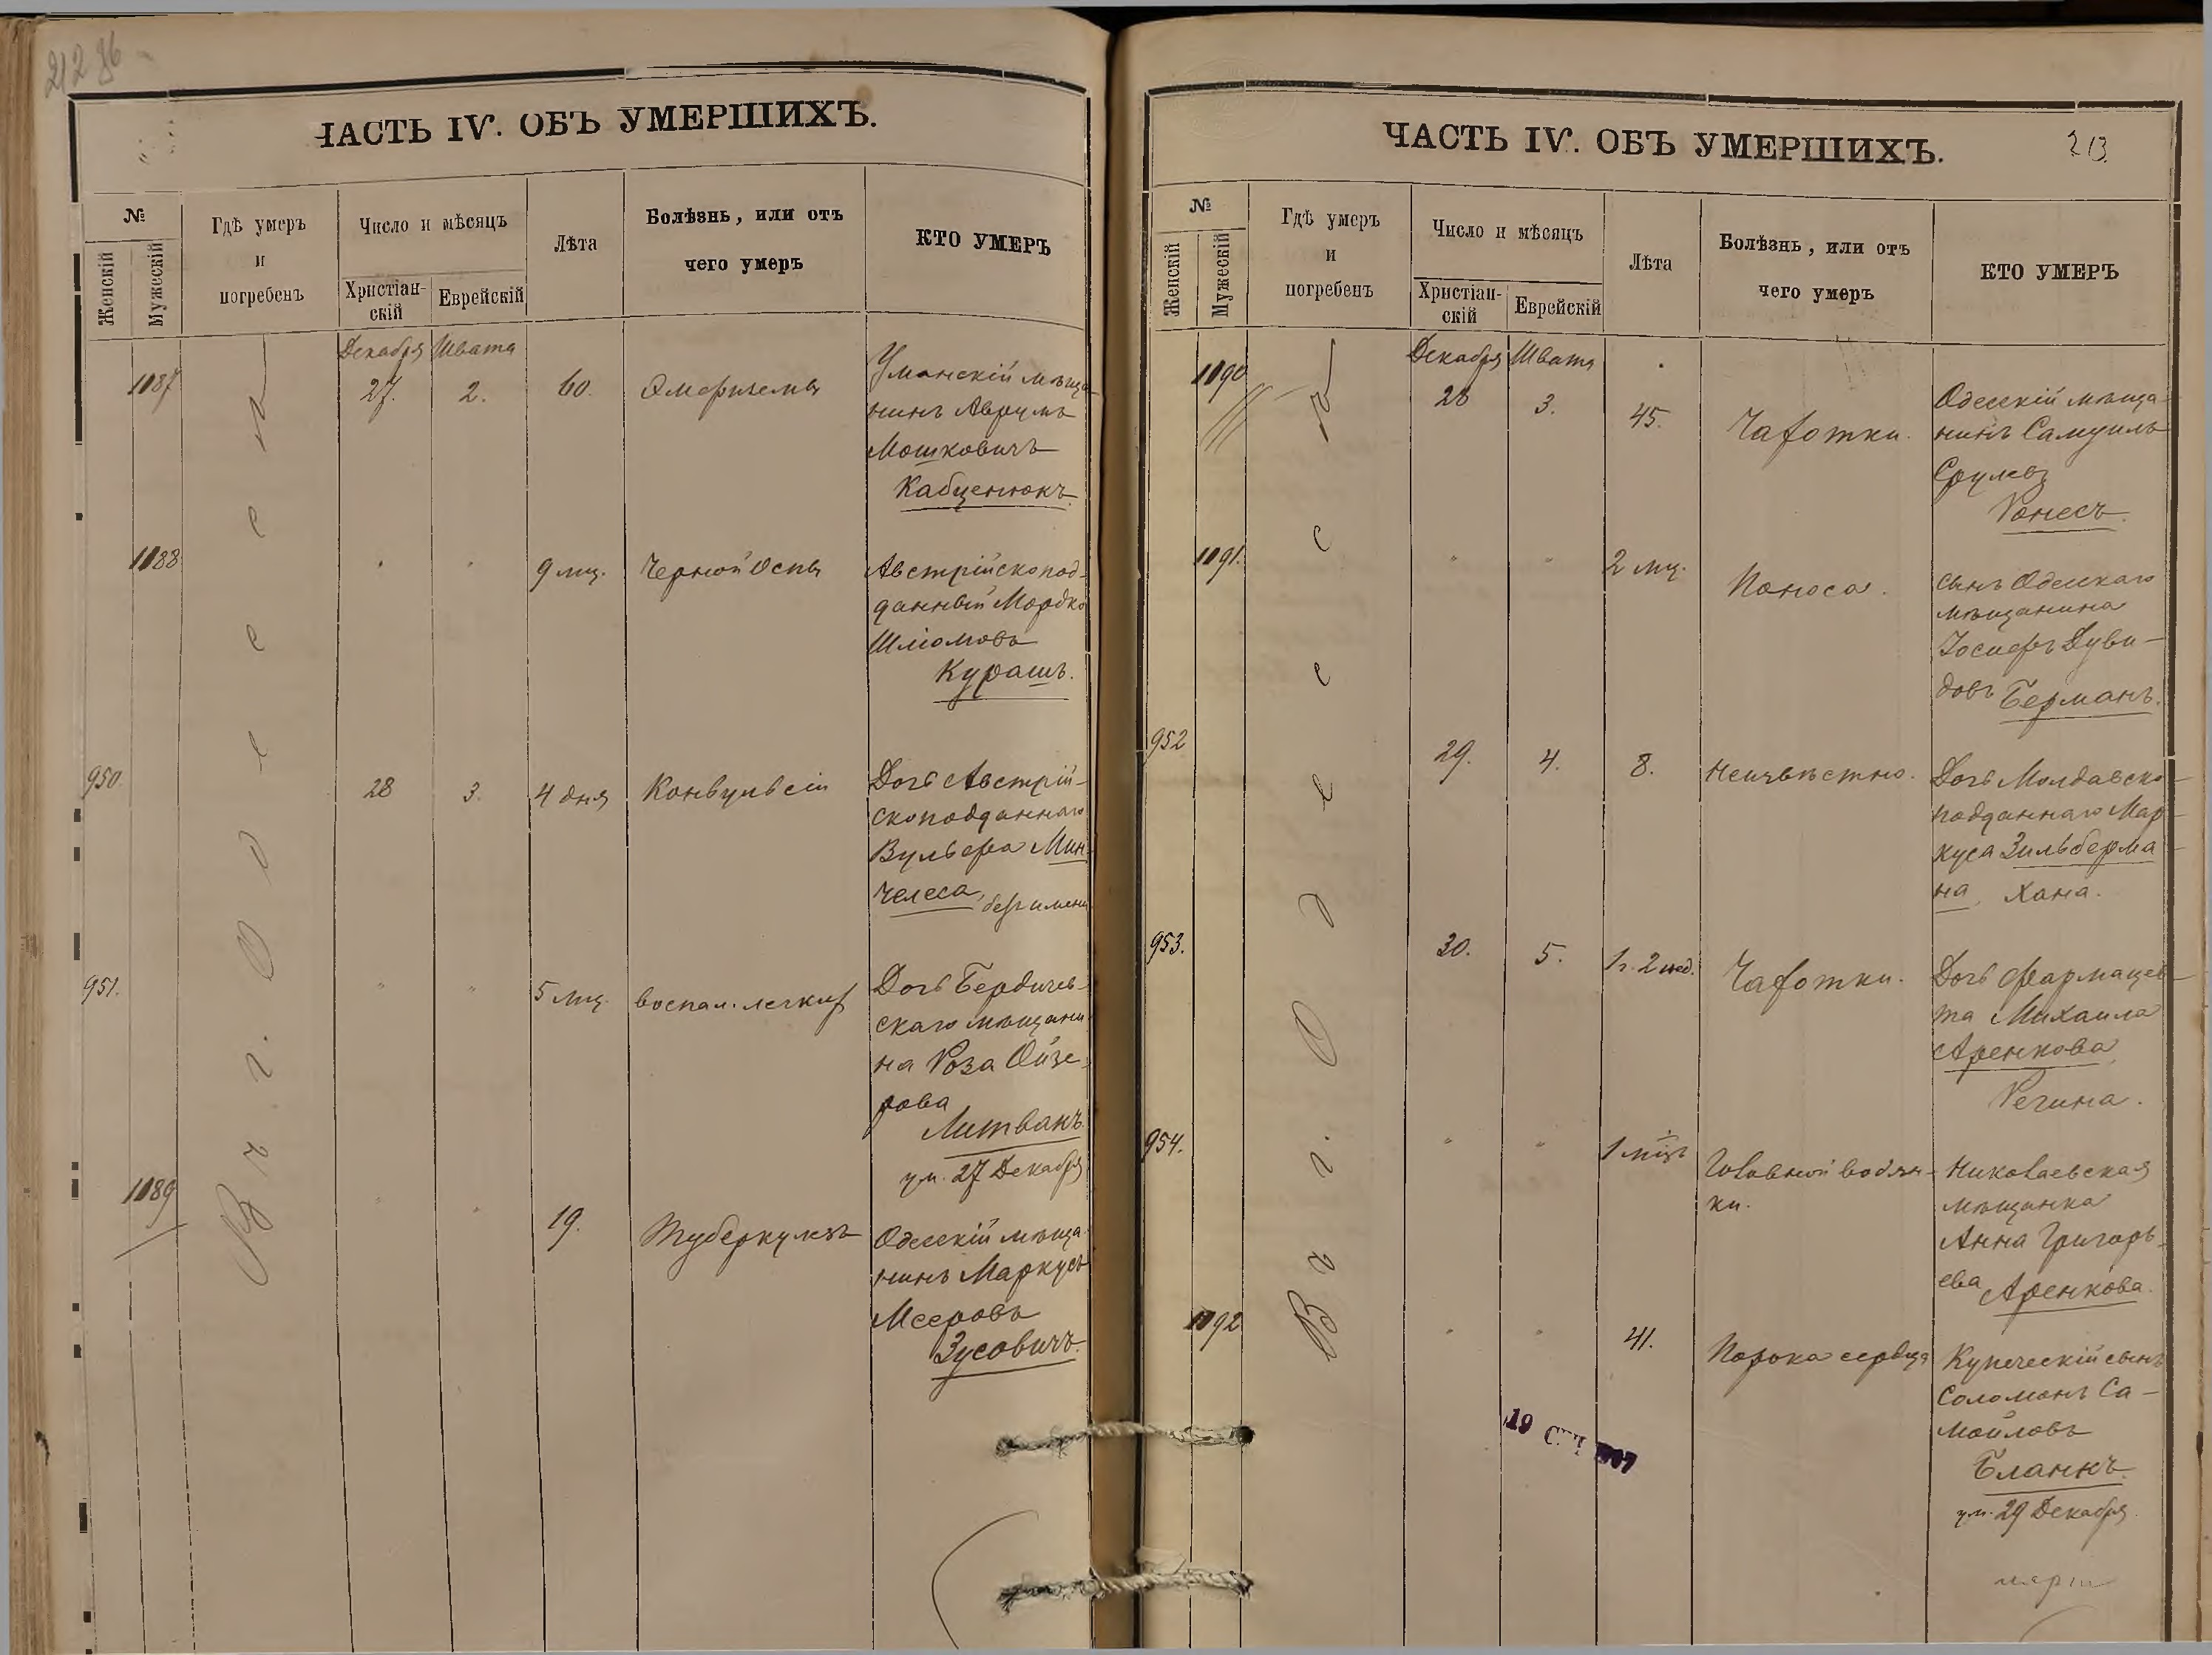 212
ЧАСТЬ IV. ОБЪ УМЕРШИХЪ.
№
Женскій
Мужескій
Гдѣ умеръ
и
погребенъ
Число и мѣсяцъ
Христіан-
скій
Еврейскій
Лѣта
Болѣзнь, или отъ
чего умеръ
КТО УМЕРЪ
Въ г. Одессѣ
Декабря Швата
1087 27. 2. 60. Эмфиземы
Уманскій мѣща
нинъ Аврумъ
Мошковичъ
Кабценюкъ.
1088 " " 9 мц. Черной Оспы
Австрійскопод-
данный Мордко
Шліомовъ
Курашъ.
950. 28 3. 4 дня Конвульсіи
Дочь Австрій-
скоподданнаго
Вульфа Мин-
челеса, безъ имени
951. " " 5 мц. воспал. легкихъ
Дочь Бердичев-
скаго мѣщани
на Роза Ойзе-
рова
Литвакъ.
ум. 27 Декабря
1089 " " 19. Туберкулезъ
Одесскій мѣща
нинъ Маркусъ
Мееровъ
Зусовичъ.
ЧАСТЬ IV. ОБЪ УМЕРШИХЪ.
213.
№
Женскій
Мужескій
Гдѣ умеръ
и
погребенъ
Число и мѣсяцъ
Христіан-
скій
Еврейскій
Лѣта
Болѣзнь, или отъ
чего умеръ
КТО УМЕРЪ
Въ г. Одессѣ
Декабря Швата
1090 28 3. 45. Чахотки.
Одесскій мѣща-
нинъ Самуилъ
Срулевъ
Ронесъ.
1091. " " 2 мц. Поноса.
сынъ Одесскаго
мѣщанина
Іосифъ Дуви-
довъ Берманъ.
952 29. 4. 8. Неизвѣстно.
Дочь Молдавско-
подданнаго Мар-
куса Зильберма-
на, Хана.
953. 30. 5. 1 г. 2 нед. Чахотки.
Дочь Фармацев-
та Михаила
Аренкова
Регина.
954. " " 1 мцъ Головной водян-
ки.
Николаевская
мѣщанка
Анна Григорь-
ева Аренкова.
1092 " " 41. Порока сердца
Купеческій сынъ
Соломонъ Са-
мойловъ
Бланкъ.
ум. 29 Декабря
19 СІЧ